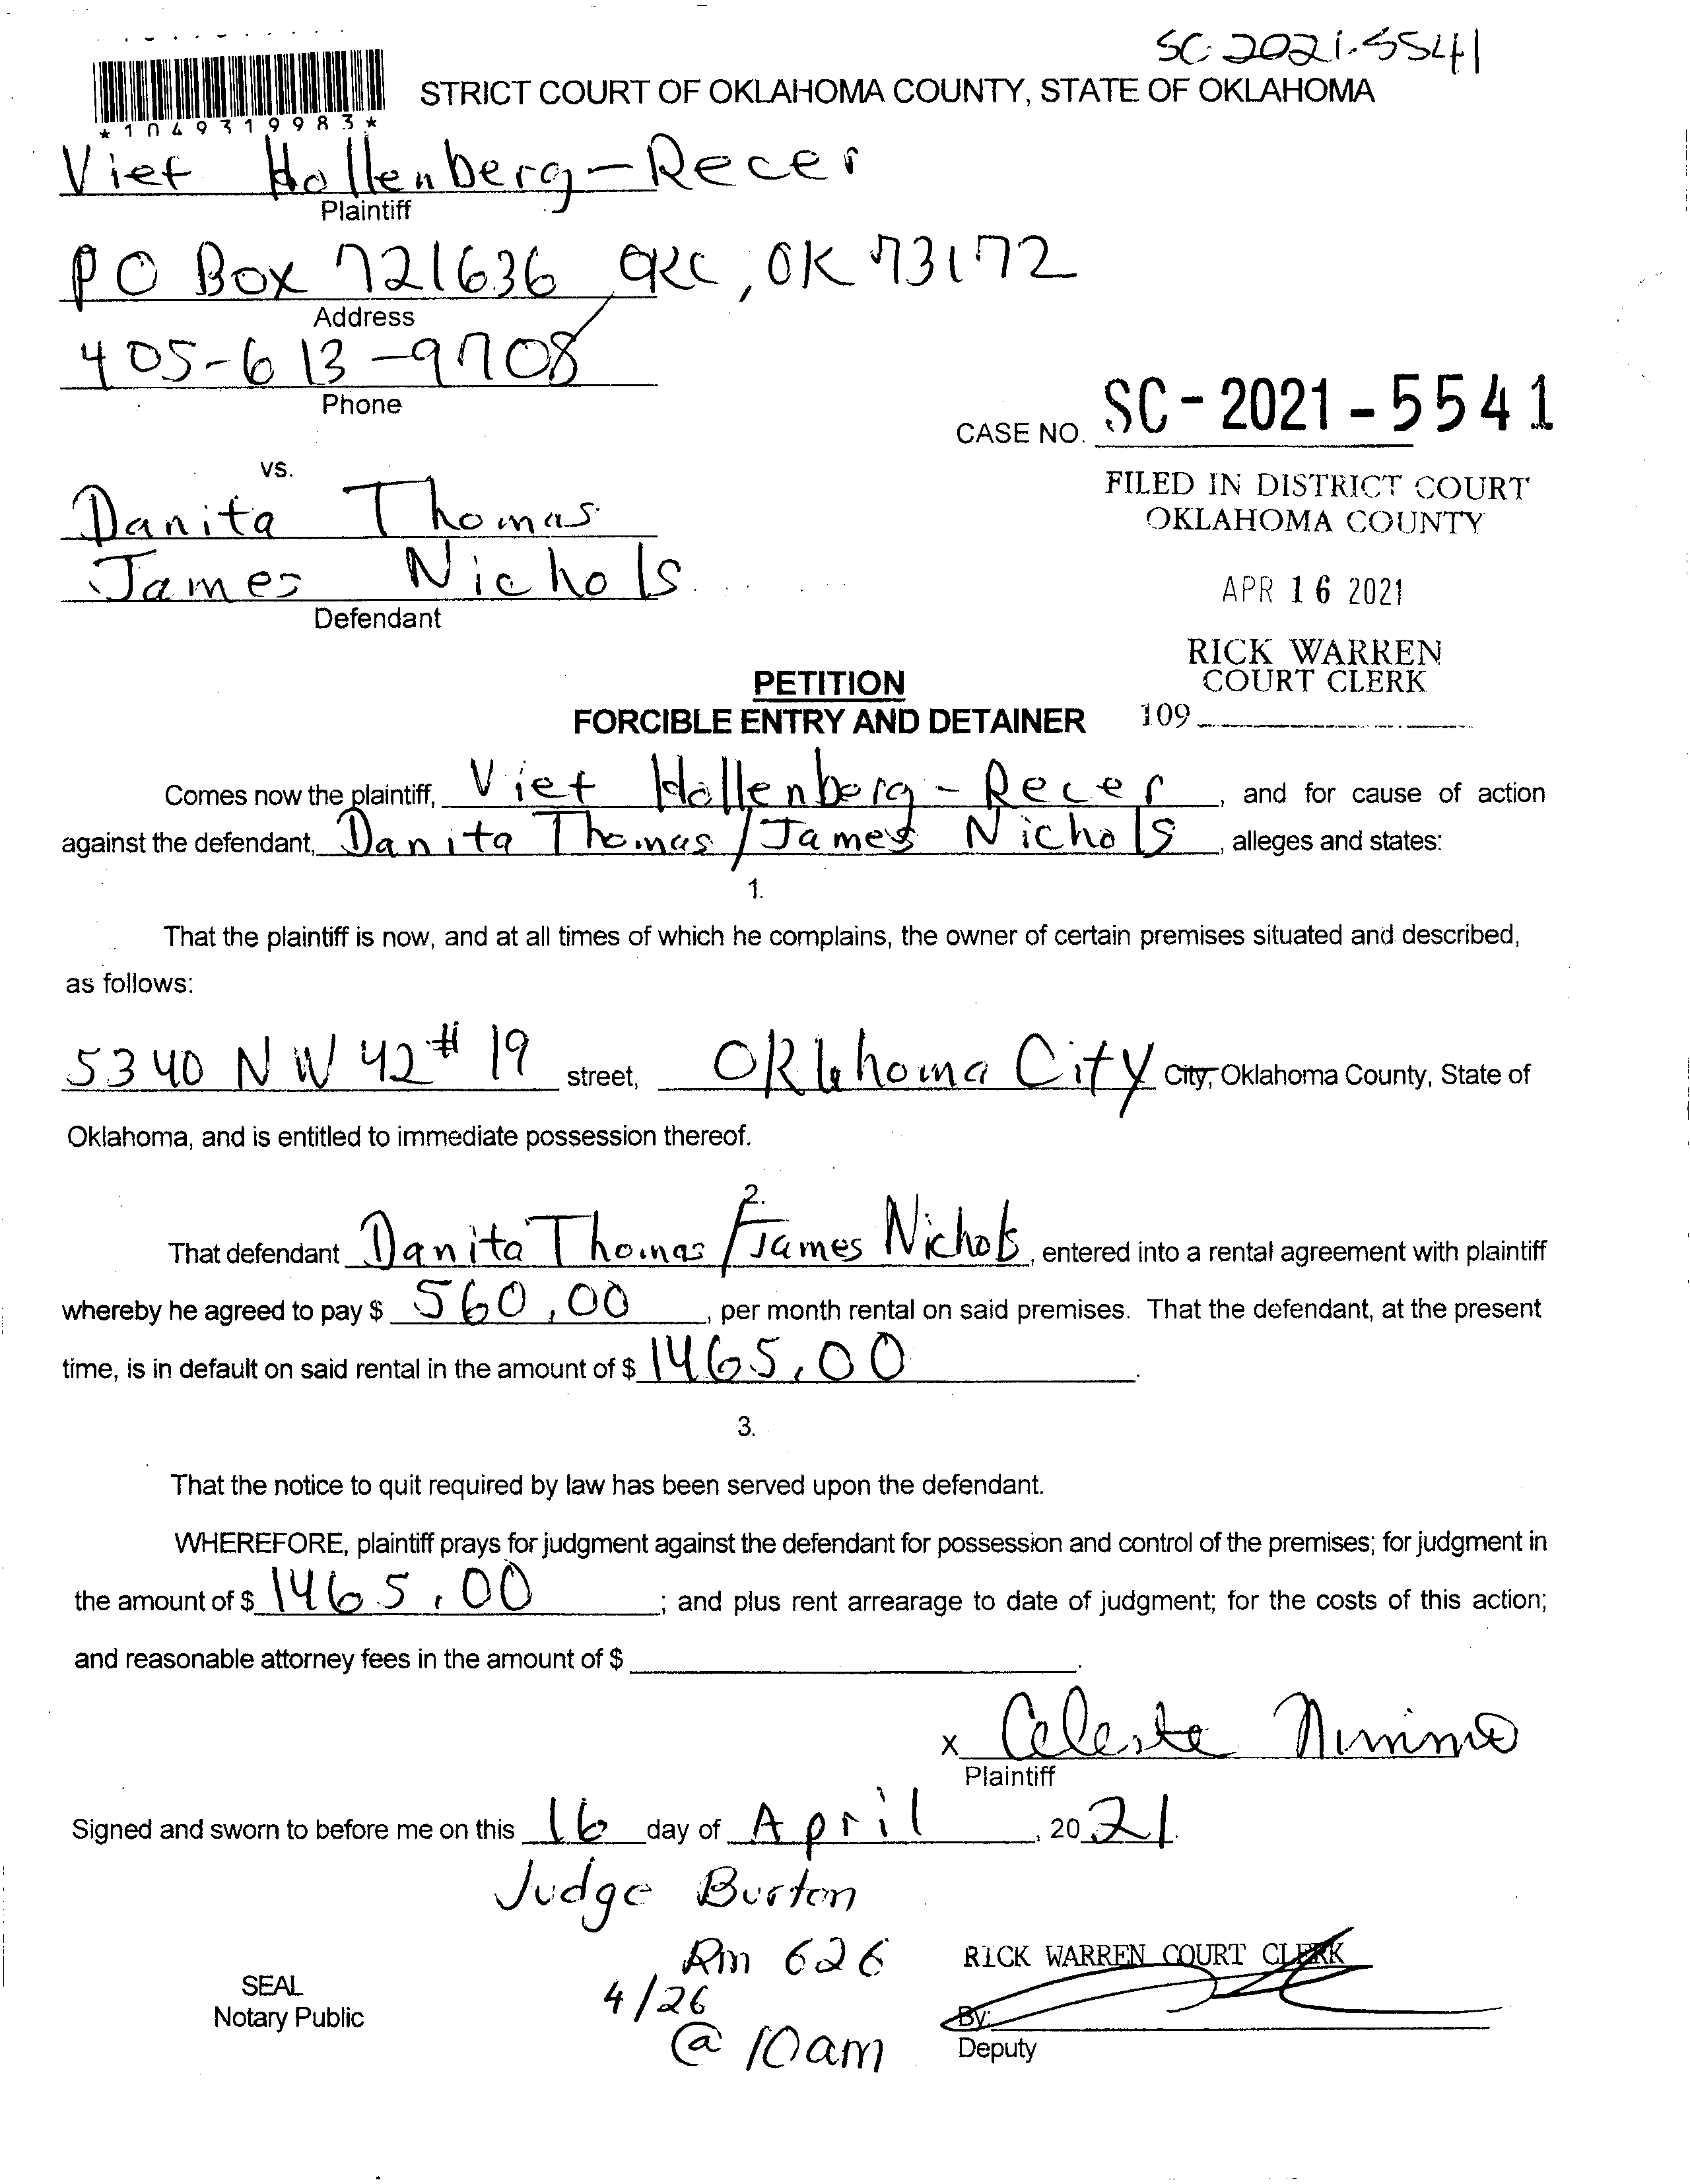 SC-2021-5541
STRICT COURT OF OKLAHOMA COUNTY, STATE OF OKLAHOMA
*1049319983*
Viet Hollenberg-Recer
Plaintiff
PO Box 721636 OKC, OK 73172
Address
405-613-9708
Phone
CASE NO. SC-2021-5541
vs.
FILED IN DISTRICT COURT
OKLAHOMA COUNTY
Danita Thomas
James Nichols
Defendant
APR 16 2021
RICK WARREN
COURT CLERK
109
PETITION
FORCIBLE ENTRY AND DETAINER
Comes now the plaintiff, Viet Hollenberg-Recer, and for cause of action
against the defendant, Danita Thomas/James Nichols, alleges and states:
1.
That the plaintiff is now, and at all times of which he complains, the owner of certain premises situated and described,
as follows:
5340 NW 42 # 19 street, Oklahoma City City, Oklahoma County, State of
Oklahoma, and is entitled to immediate possession thereof.
2.
That defendant Danita Thomas/James Nichols, entered into a rental agreement with plaintiff
whereby he agreed to pay $ 560.00, per month rental on said premises. That the defendant, at the present
time, is in default on said rental in the amount of $ 1465.00.
3.
That the notice to quit required by law has been served upon the defendant.
WHEREFORE, plaintiff prays for judgment against the defendant for possession and control of the premises; for judgment in
the amount of $ 1465.00; and plus rent arrearage to date of judgment; for the costs of this action;
and reasonable attorney fees in the amount of $.
X Celeste Nimmo
Plaintiff
Signed and sworn to before me on this 16 day of April, 2021.
Judge Burton
Rm 626
4/26
@ 10am
SEAL
Notary Public
RICK WARREN COURT CLERK
By:
Deputy